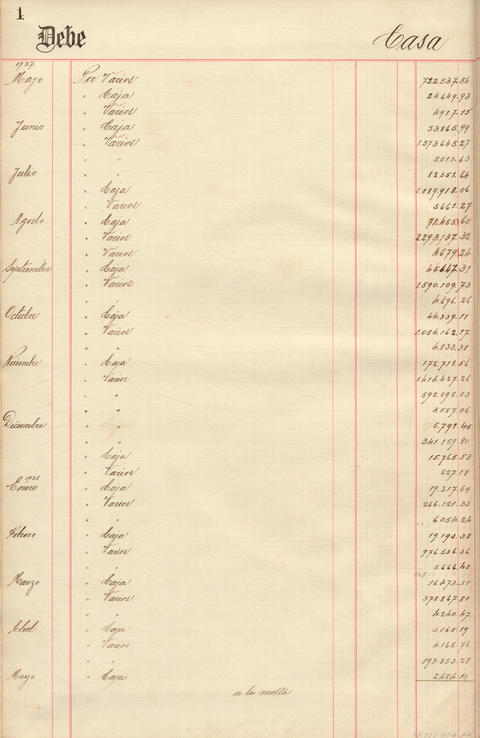 1
Debe Casa
1937
Mayo Por Varios 722.537.54
" Caja 24.649.93
" Varios 4.917.15
Junio " Caja 53.865.99
" Varios 1.573.645.27
" " 5.011.63
Julio " " 82.551.64
" Caja 1.089.918.06
" Varios 5.661.27
Agosto " Caja 72.455.60
" Varios 2.293.137.32
" Varios 4.679.24
Septiembre " Caja 45.647.31
" Varios 1.590.109.73
" " 4.696.26
Octubre " Caja 44.339.11
" Varios 1.054.162.17
" " 4.833.31
Novembre " Caja 172.718.56
" Varios 1.414.427.26
" " 592.098.03
" " 3.557.06
Diciembre " 5.791.45
" " 341.159.80
" Caja 15.765.53
" Varios 227.18
Enero " Caja 19.317.64
" Varios 266.121.33
" " 6.054.24
Febrero " Caja 19.193.38
" Varios 976.536.36
" " 5.666.43
Marzo " Caja 16.473.38
" Varios 378.867.80
" " 4.240.47
Abril " Caja 3.065.19
" Varios 4.165.76
" " 193.853.28
Mayo " Caja 2.484.13
a la vuelta